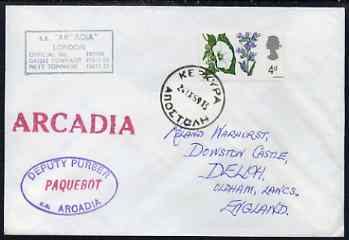 s.s. "ARCADIA"
LONDON
OFFICIAL No.
GROSS TONNAGE
NETT TONNAGE
4d
ΚΕΡΚΥΡΑ
ΑΠΟΣΤΟΛΗ
ARCADIA
DEPUTY PURSER
PAQUEBOT
s.s. ARCADIA
Roland Warhurst,
Dowston Castle,
Delph,
Oldham, Lancs.
England.